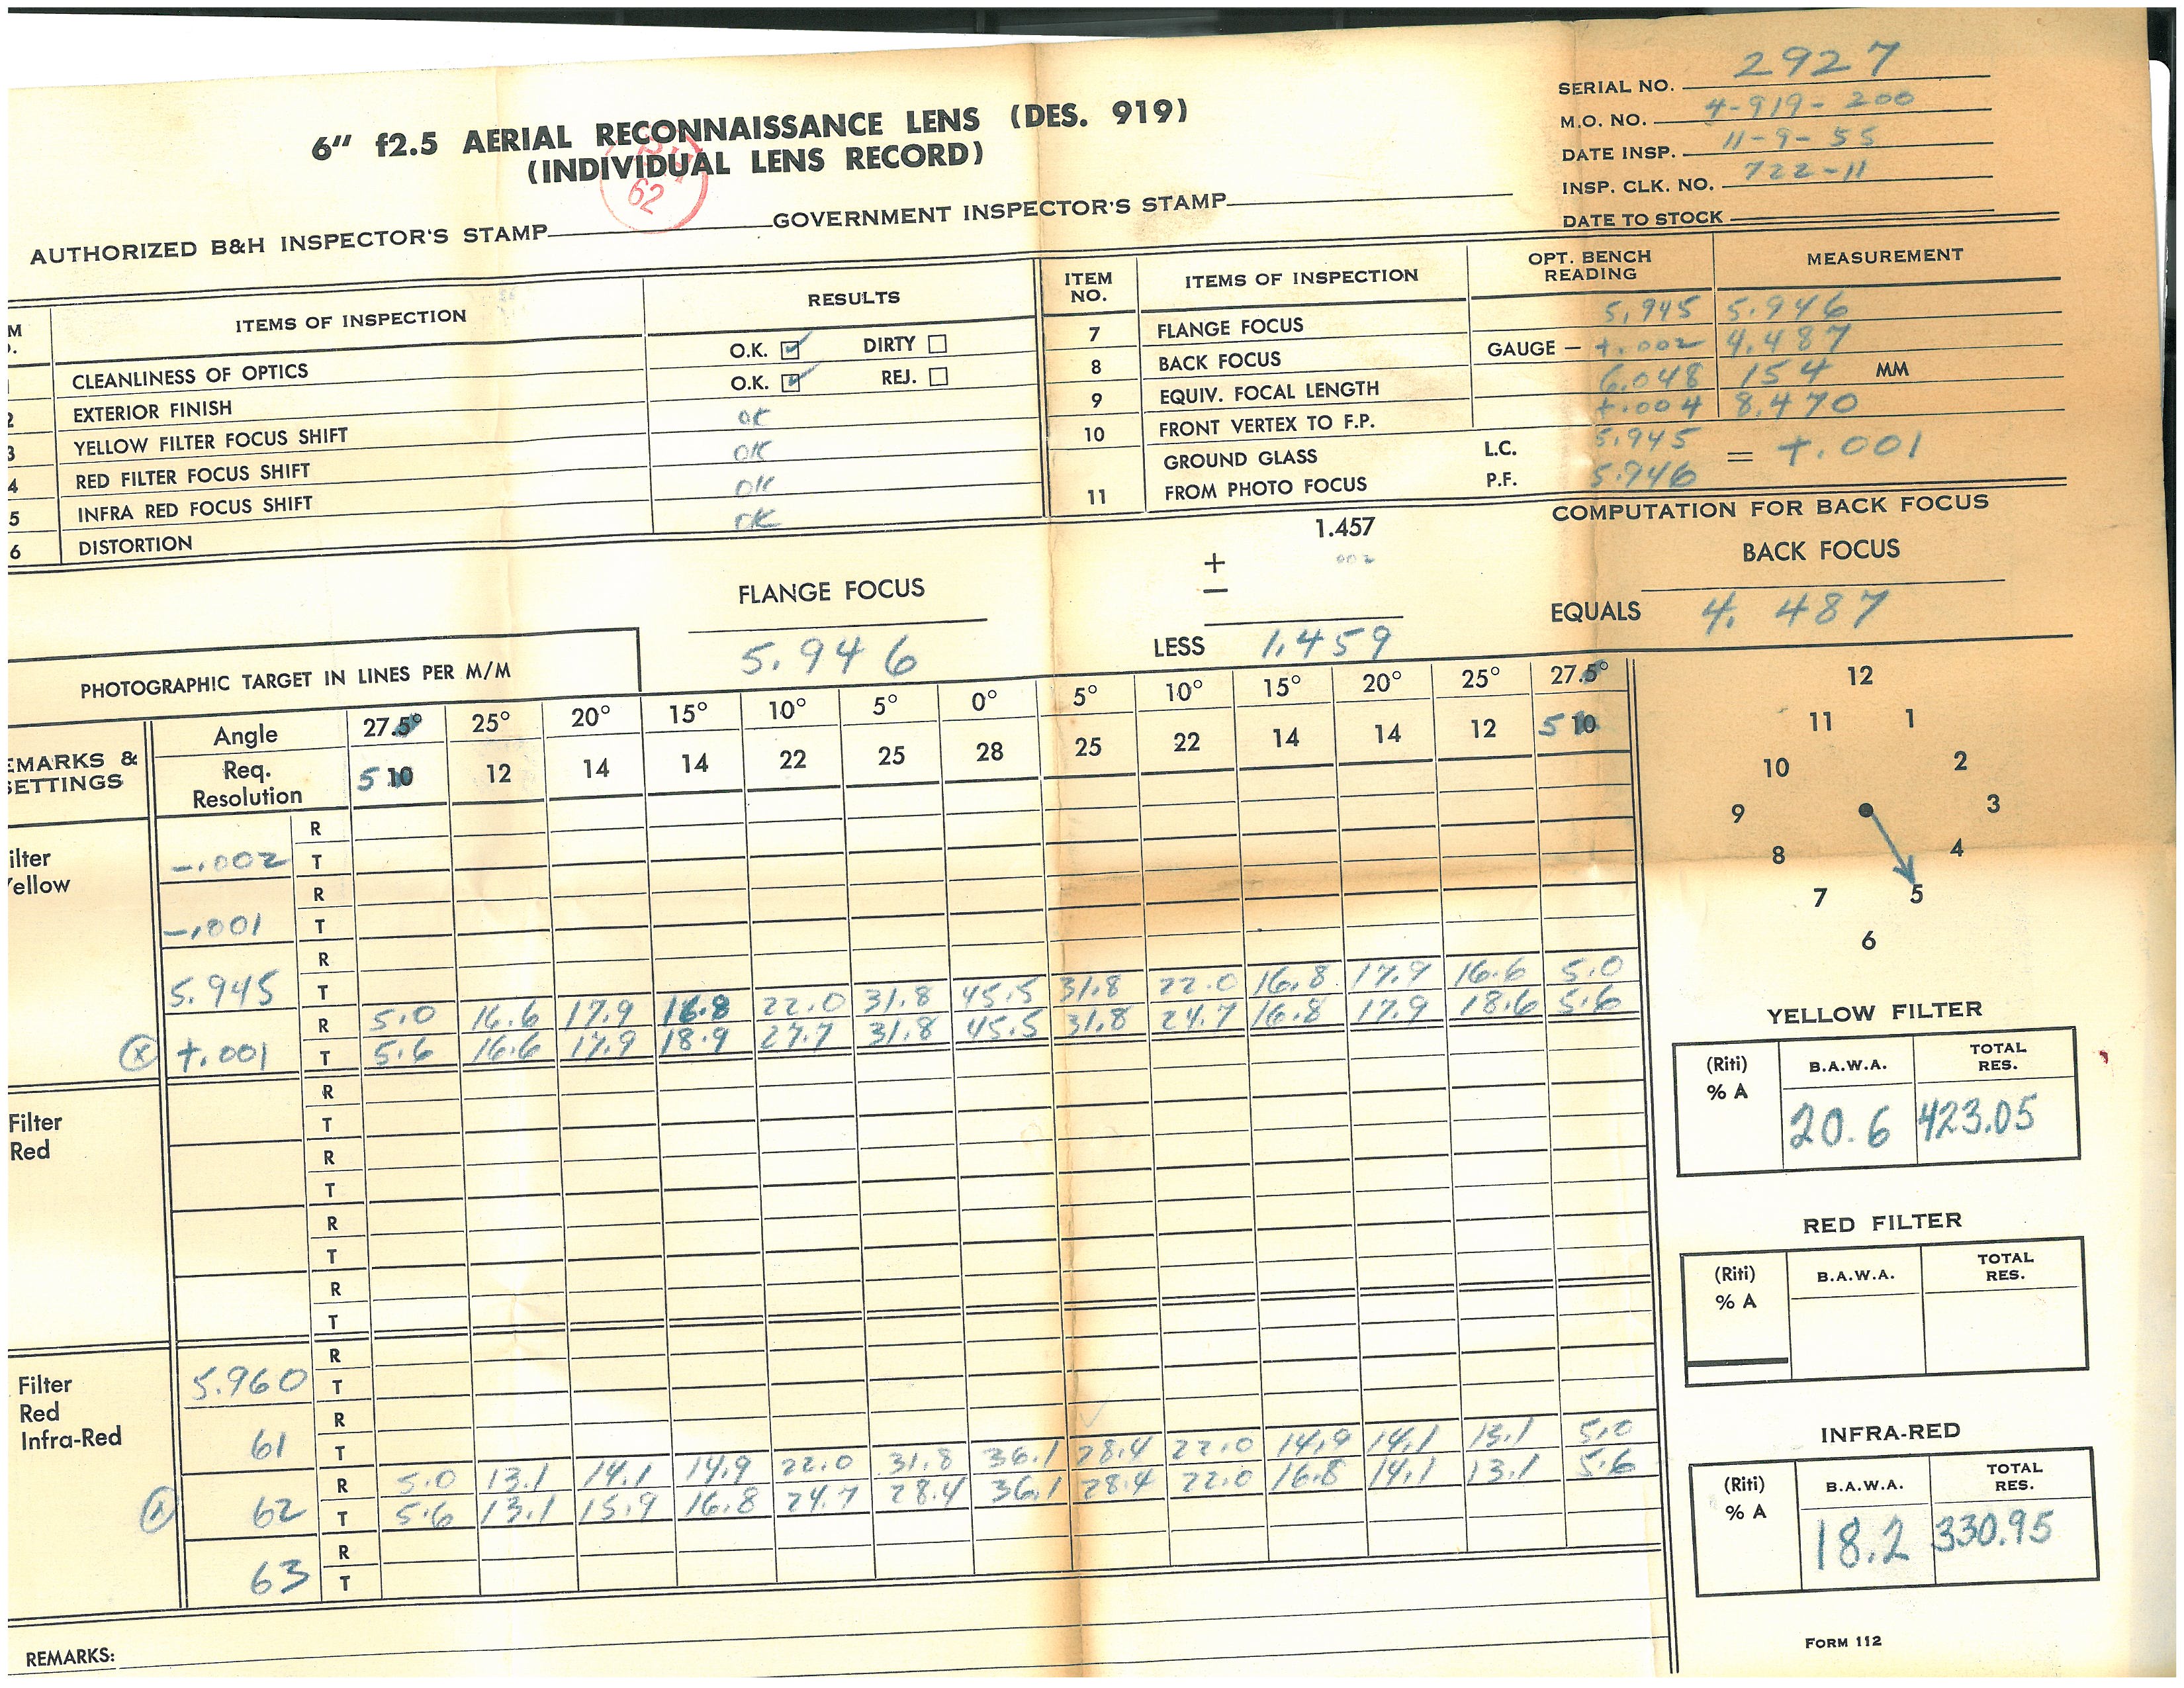 SERIAL NO. 2927
M.O. NO. 4-919-200
DATE INSP. 11-9-55
INSP. CLK. NO. 722-11
DATE TO STOCK
6" f2.5 AERIAL RECONNAISSANCE LENS (DES. 919)
(INDIVIDUAL LENS RECORD)
62
AUTHORIZED B&H INSPECTOR'S STAMP GOVERNMENT INSPECTOR'S STAMP
M ITEMS OF INSPECTION RESULTS
1 CLEANLINESS OF OPTICS O.K. DIRTY
2 EXTERIOR FINISH O.K. REJ.
3 YELLOW FILTER FOCUS SHIFT OK
4 RED FILTER FOCUS SHIFT OK
5 INFRA RED FOCUS SHIFT OK
6 DISTORTION OK
ITEM NO. ITEMS OF INSPECTION OPT. BENCH READING MEASUREMENT
7 FLANGE FOCUS 5.945 5.946
8 BACK FOCUS GAUGE — +.002 4.487
9 EQUIV. FOCAL LENGTH 6.048 154 MM
10 FRONT VERTEX TO F.P. +.004 8.470
GROUND GLASS L.C. 5.945 = +.001
11 FROM PHOTO FOCUS P.F. 5.946
COMPUTATION FOR BACK FOCUS
1.457
+ 002
—
FLANGE FOCUS BACK FOCUS
5.946 LESS 1.459 EQUALS 4.487
PHOTOGRAPHIC TARGET IN LINES PER M/M
EMARKS & SETTINGS
Angle 27.5° 25° 20° 15° 10° 5° 0° 5° 10° 15° 20° 25° 27.5°
Req. Resolution 5 10 12 14 14 22 25 28 25 22 14 14 12 5 10
ilter
ellow
R
-.002 T
R
-.001 T
R
5.945 T 5.0 16.6 17.9 16.8 22.0 31.8 45.5 31.8 22.0 16.8 17.9 16.6 5.0
R
(x) +.001 T 5.6 16.6 17.9 18.9 27.7 31.8 45.5 31.8 24.7 16.8 17.9 18.6 5.6
Filter
Red
R
T
R
T
R
T
R
T
Filter
Red
Infra-Red
R
5.960 T
R
61 T
R 5.0 13.1 14.1 14.9 22.0 31.8 36.1 28.4 22.0 14.9 14.1 13.1 5.0
62 T 5.6 13.1 15.9 16.8 24.7 28.4 36.1 28.4 22.0 16.8 14.1 13.1 5.6
R
63 T
REMARKS:
12
11 1
10 2
9 3
8 4
7 5
6
YELLOW FILTER
(Riti) % A B.A.W.A. TOTAL RES.
20.6 423.05
RED FILTER
(Riti) % A B.A.W.A. TOTAL RES.
INFRA-RED
(Riti) % A B.A.W.A. TOTAL RES.
18.2 330.95
FORM 112